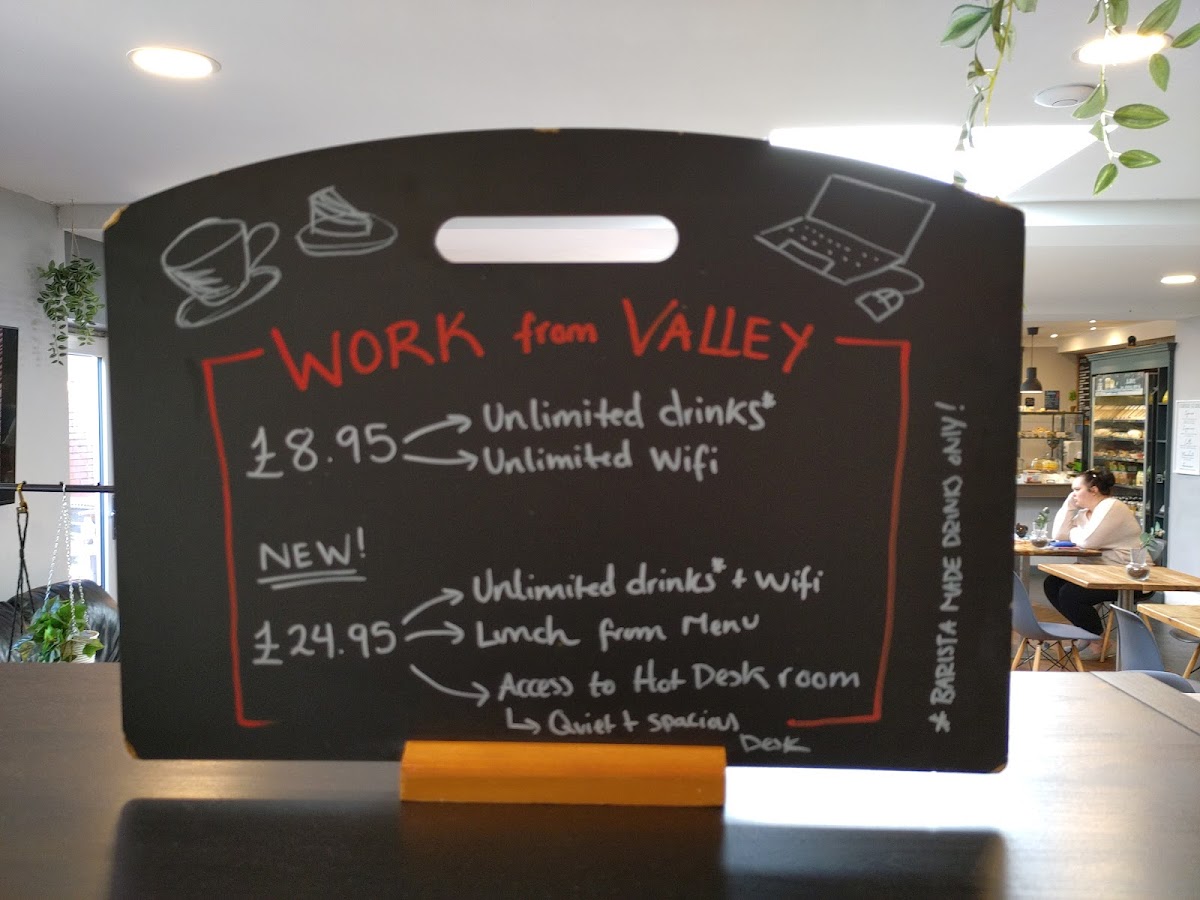 WORK from VALLEY
£8.95
Unlimited drinks*
Unlimited Wifi
NEW!
£24.95
Unlimited drinks* + Wifi
Lunch from Menu
Access to Hot Desk room
Quiet + spacious
Desk
* BARISTA MADE DRINKS ONLY!